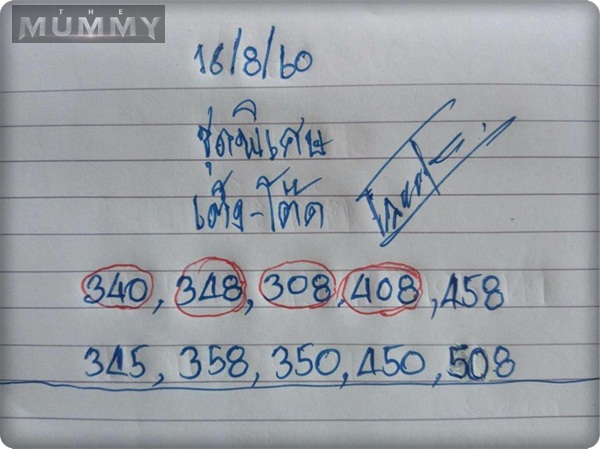 THE
MUMMY
16/8/60
ชุดพิเศษ
เต็ง-โต๊ด
340, 348, 308, 408, 458
345, 358, 350, 450, 508